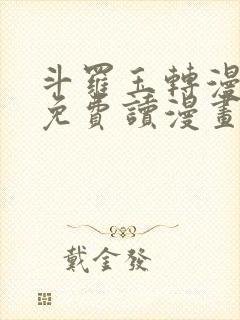 斗羅玉轉漫
免費讀漫畫
戴金發